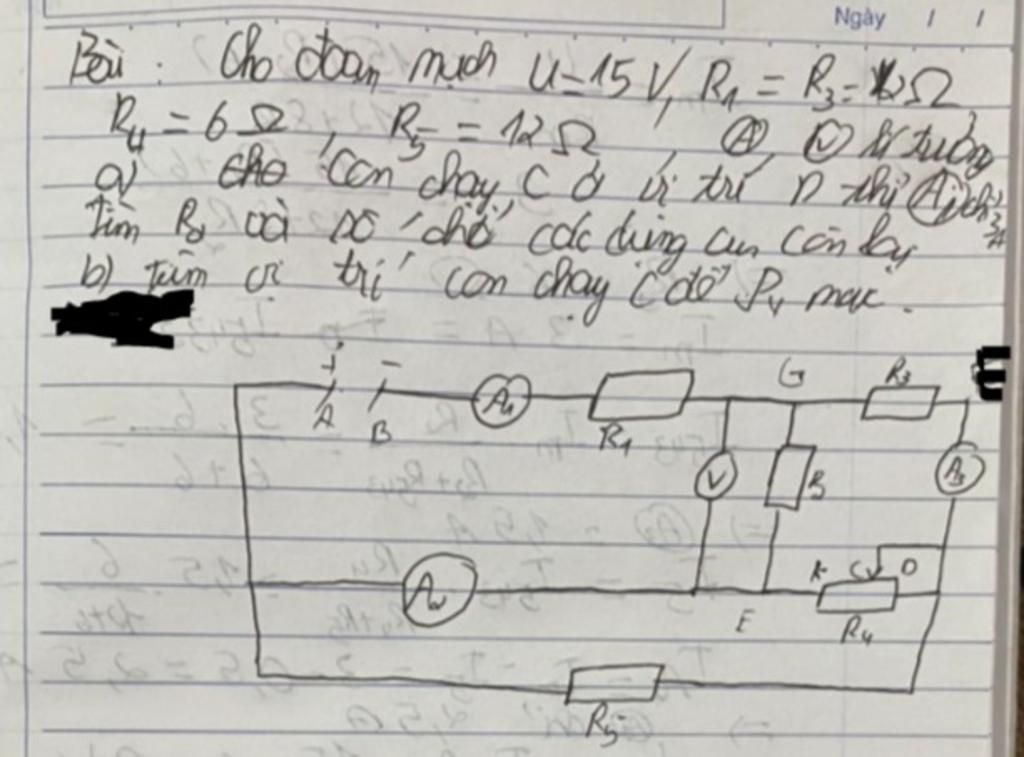 Ngày / /
Bài : Cho đoạn mạch U = 15 V, R1 = R3 = 2Ω
R4 = 6 Ω , R5 = 12 Ω , (A) , (V) lí tưởng
a) con chạy C ở vị trí D thì (A1) chỉ 3A
Tìm R2 và số chỉ các dụng cụ còn lại
b) tìm vị trí con chạy C để max.
+ -
A B A1 R1 G R3 E
V R2 A3
A2 E K C D
R4
R5